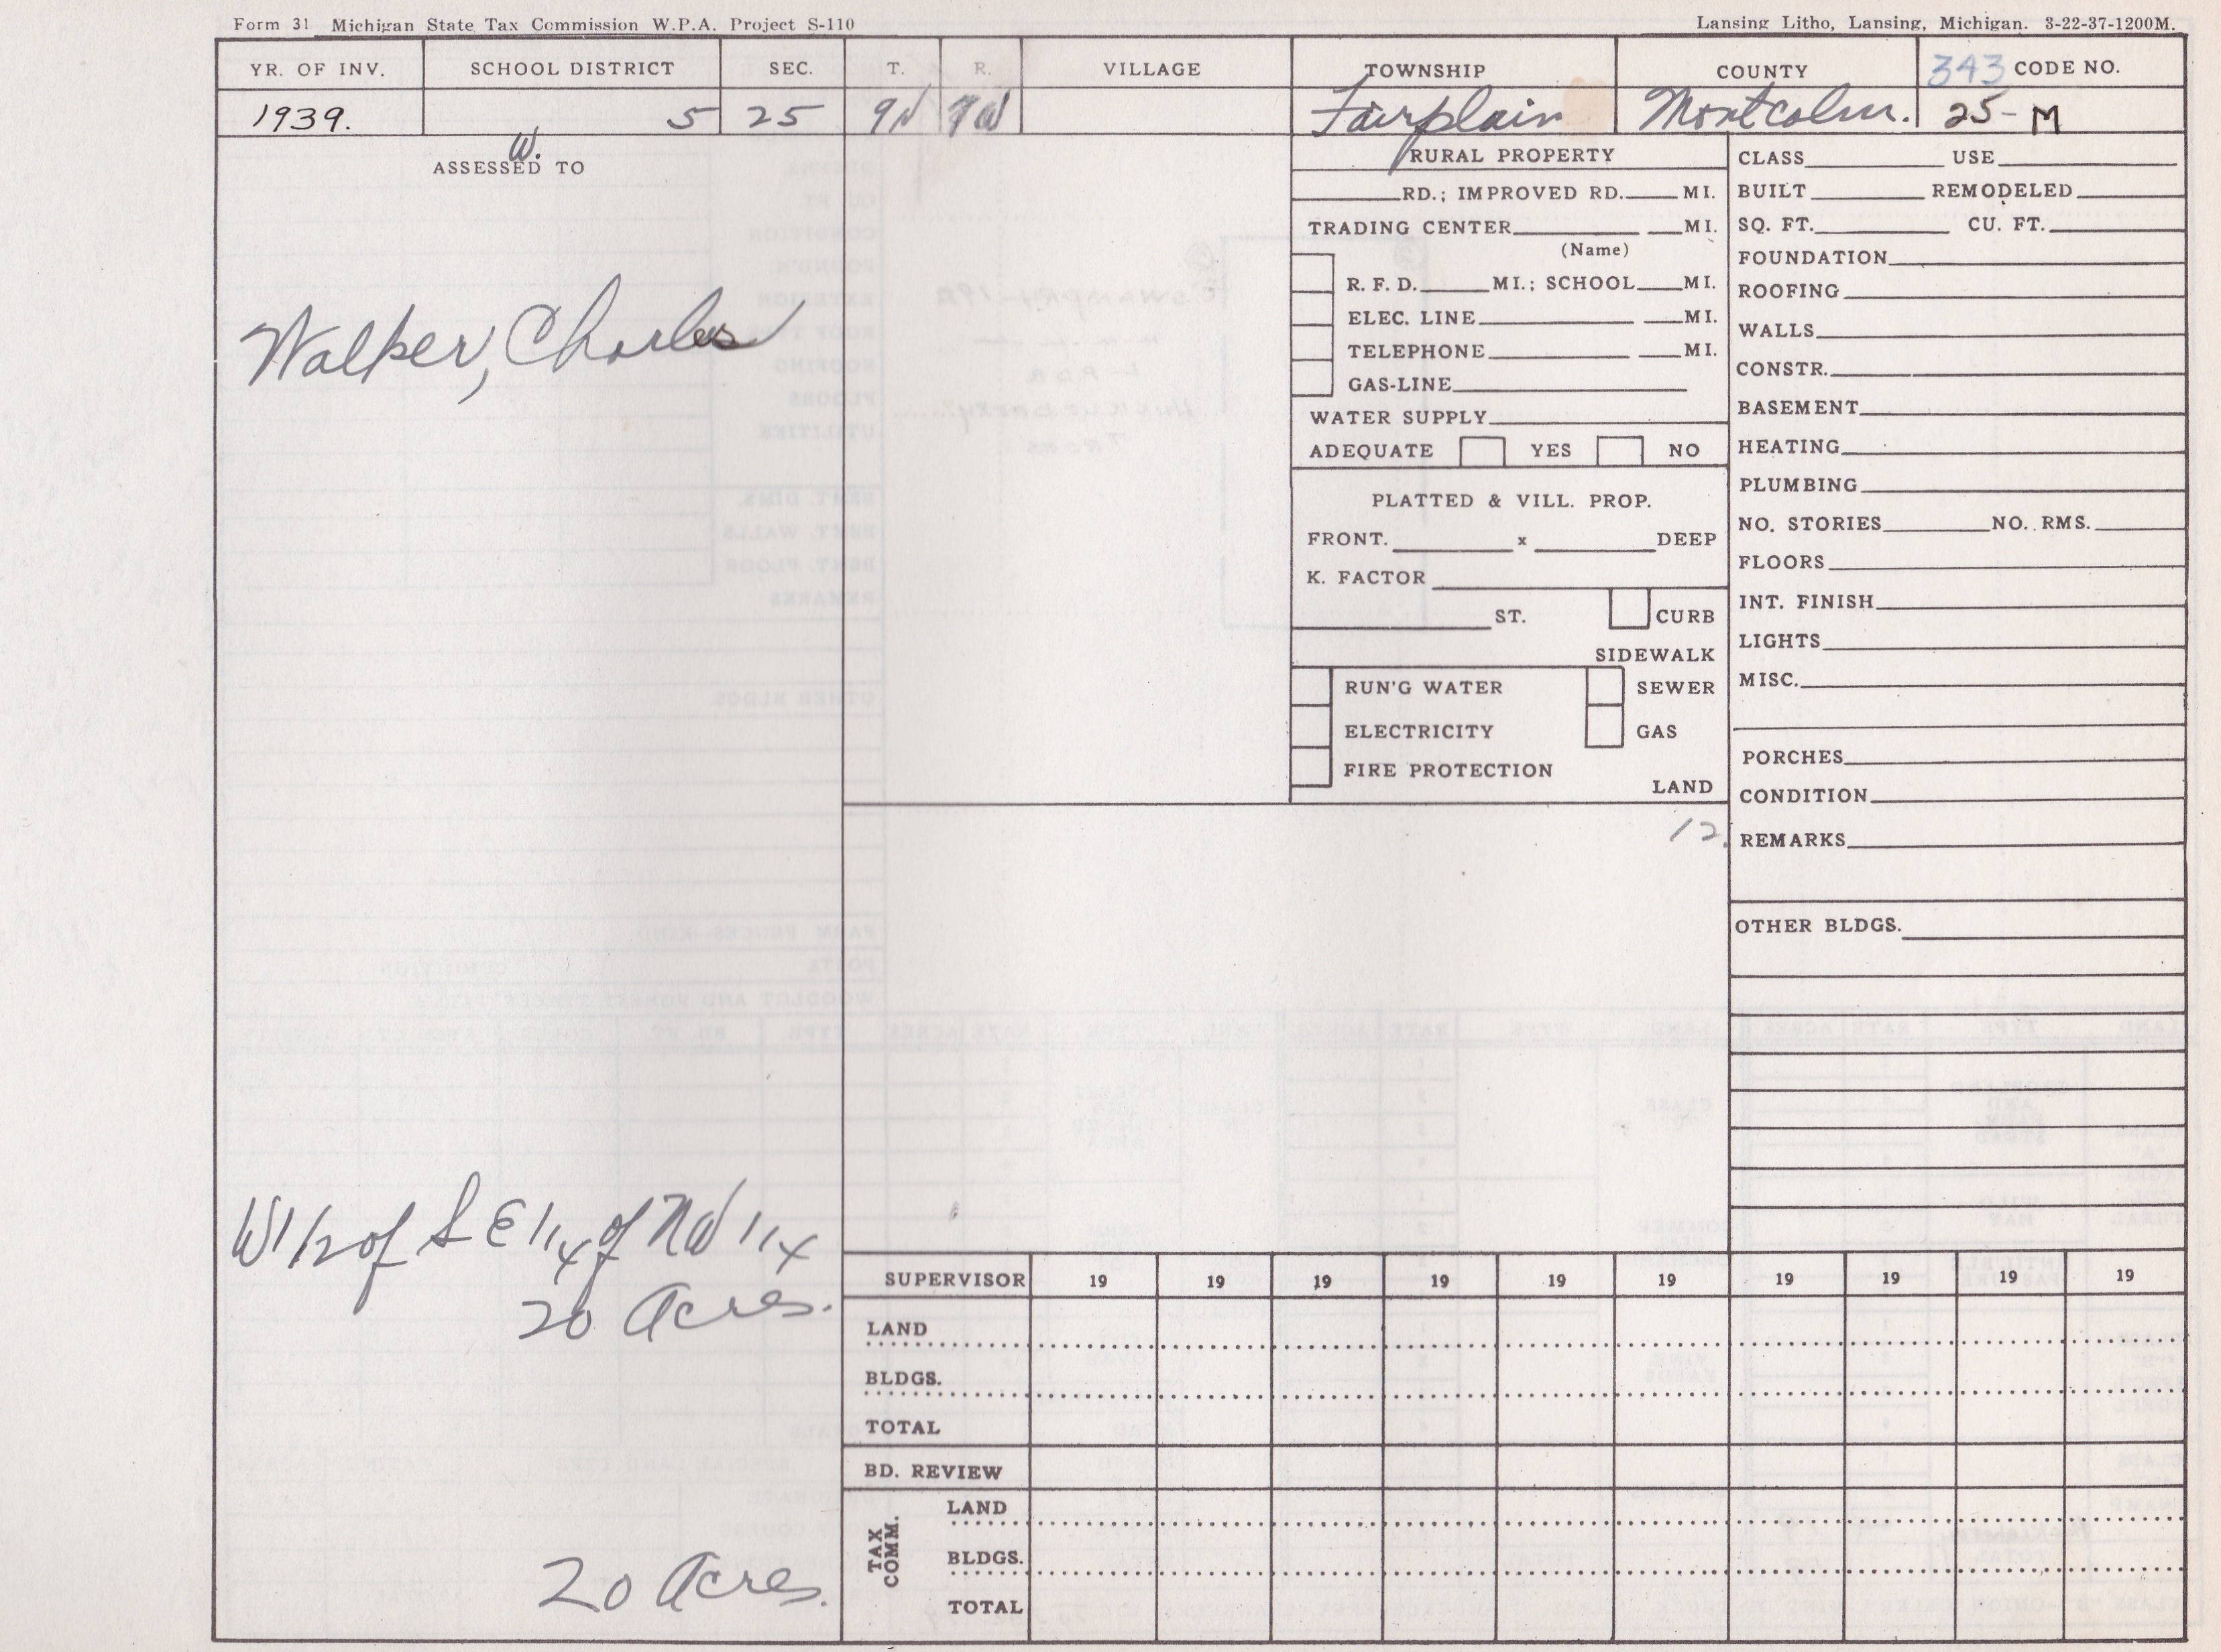 Form 31 Michigan State Tax Commission W.P.A. Project S-110
Lansing Litho, Lansing, Michigan. 3-22-37-1200M.
YR. OF INV. SCHOOL DISTRICT SEC. T. R. VILLAGE TOWNSHIP COUNTY 343 CODE NO.
1939. 5 25 9N 7W Fairplain Montcalm. 25-M
W.
ASSESSED TO
Walker, Charles
W 1/2 of S E 1/4 of NW 1/4
20 Acres.
20 Acres.
RURAL PROPERTY
RD.; IMPROVED RD. MI.
TRADING CENTER MI.
(Name)
R. F. D. MI.; SCHOOL MI.
ELEC. LINE MI.
TELEPHONE MI.
GAS-LINE
WATER SUPPLY
ADEQUATE YES NO
PLATTED & VILL. PROP.
FRONT. x DEEP
K. FACTOR
ST. CURB
SIDEWALK
RUN'G WATER SEWER
ELECTRICITY GAS
FIRE PROTECTION
LAND
12.
CLASS USE
BUILT REMODELED
SQ. FT. CU. FT.
FOUNDATION
ROOFING
WALLS
CONSTR.
BASEMENT
HEATING
PLUMBING
NO. STORIES NO. RMS.
FLOORS
INT. FINISH
LIGHTS
MISC.
PORCHES
CONDITION
REMARKS
OTHER BLDGS.
SUPERVISOR 19 19 19 19 19 19 19 19 19 19
LAND
BLDGS.
TOTAL
BD. REVIEW
TAX COMM.
LAND
BLDGS.
TOTAL